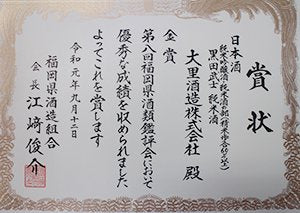 賞状
日本酒
純米吟醸酒・純米酒の部
黒田武士 純米酒
大里酒造株式会社 殿
金賞
第八回福岡県酒類鑑評会において
優秀な成績を収められました
よってこれを賞します
令和元年九月十二日
福岡県酒造組合
会長 江﨑俊介